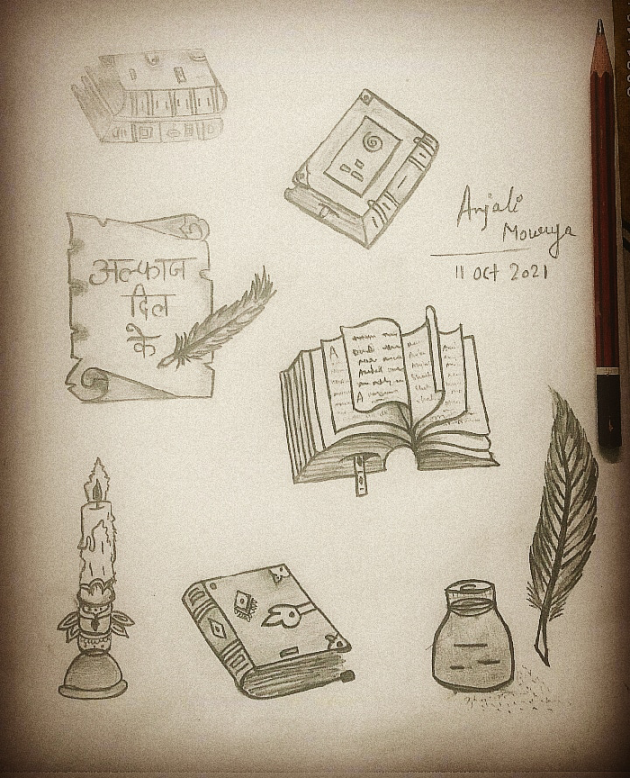 अल्फाज
दिल
के
Anjali
Mourya
11 Oct 2021